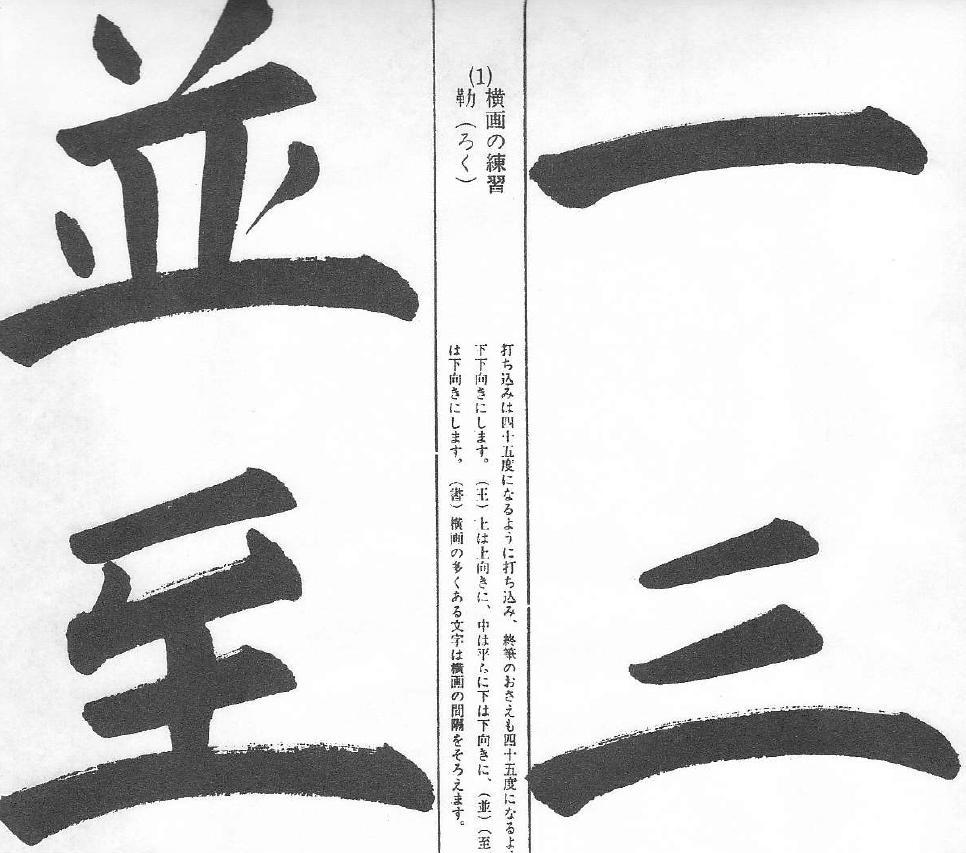 一
三
(1)
横画の練習
勒（ろく）
打ち込みは四十五度になるように打ち込み、終筆のおさえも四十五度になるよ
下下向きにします。（王）上は上向きに、中は平らに下は下向きに、（並）（至
は下向きにします。（書）横画の多くある文字は横画の間隔をそろえます。
並
至